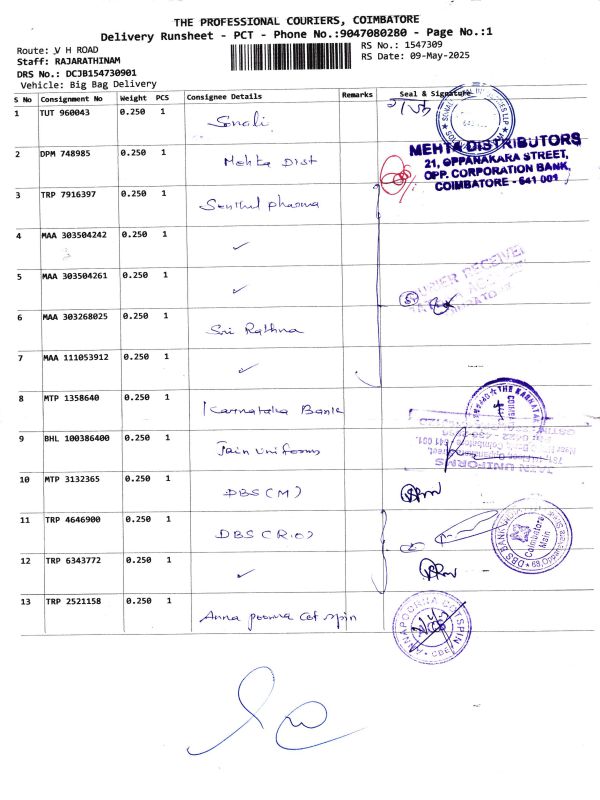 THE PROFESSIONAL COURIERS, COIMBATORE
Delivery Runsheet - PCT - Phone No.:9047080280 - Page No.:1
Route: V H ROAD
RS No.: 1547309
Staff: RAJARATHINAM
RS Date: 09-May-2025
DRS No.: DCJB154730901
Vehicle: Big Bag Delivery
S No Consignment No Weight PCS Consignee Details Remarks Seal & Signature
1 TUT 960043 0.250 1 Sonali
2 DPM 748985 0.250 1 Mehta Dist
MEHTA DISTRIBUTORS
21, OPPANAKARA STREET,
OPP. CORPORATION BANK,
COIMBATORE - 641 001
3 TRP 7916397 0.250 1 Senthil pharma
4 MAA 303504242 0.250 1 ✓
5 MAA 303504261 0.250 1 ✓
COURIER RECEIVED
6 MAA 303268025 0.250 1 Sri Rathna
7 MAA 111053912 0.250 1 ✓
8 MTP 1358640 0.250 1 Karnataka Bank
THE KARNATAK
9 BHL 100386400 0.250 1 Jain Uniforms
JAIN UNIFORMS
10 MTP 3132365 0.250 1 DBS (M)
11 TRP 4646900 0.250 1 DBS (R.O)
DBS BANK
Coimbatore
Main
12 TRP 6343772 0.250 1 ✓
13 TRP 2521158 0.250 1 Anna poorna Cot spin
ANNAPOORNA COTSPIN
CBE